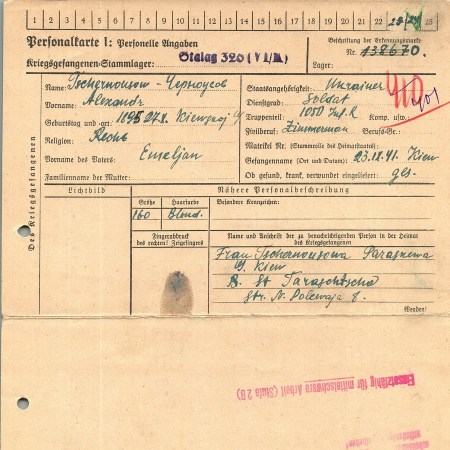 1 2 3 4 5 6 7 8 9 10 11 12 13 14 15 16 17 18 19 20 21 22 23 24 25
Personalkarte I: Personelle Angaben
Kriegsgefangenen-Stammlager: Stalag 326 (VI/K)
Beschriftung der Erkennungsmarke
Nr. 138670.
Lager:
Des Kriegsgefangenen
Name: Tschernousow - Черноусов
Vorname: Alexandr
Geburtstag und -ort: 1895 27.8. Kiewskoj
Religion: Rechtgl
Vorname des Vaters: Emeljan
Familienname der Mutter:
Staatsangehörigkeit: Ukrainer
Dienstgrad: Soldat
Truppenteil: 1050 Inf. R Komp. usw.:
Zivilberuf: Zimmerman Berufs-Gr.:
Matrikel Nr. (Stammrolle des Heimatstaates):
Gefangennahme (Ort und Datum): 23.12.41. Kiew
Ob gesund, krank, verwundet eingeliefert: ges.
Lichtbild
Nähere Personalbeschreibung
Größe Haarfarbe Besondere Kennzeichen:
160 Blond.
Fingerabdruck
des rechten! Zeigefingers
Name und Anschrift der zu benachrichtigenden Person in der Heimat
des Kriegsgefangenen
Frau Tschernousowa Paraskewa
G. Kiew
St Taraschtscha
Str. N. Polewaja 8.
Wenden!
Einsatzfähig für mittelschwere Arbeit (Stufe 2 B)